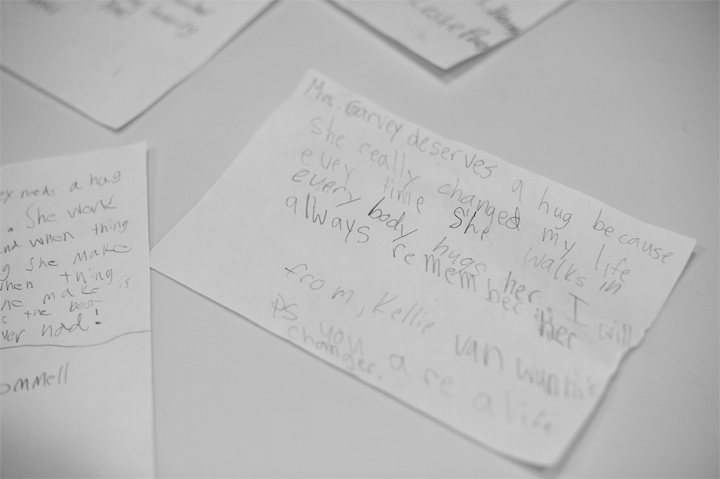 Mrs. Garvey deserves a hug because
she really changed my life
evey time she walks in
every body hugs her. I will
always remember her
from, Kellie van wunnik
PS you are a life
changer.
needs a hug
. She work
nd when thing
g she make
when thing
he make is
s the best
ver had!
ommell